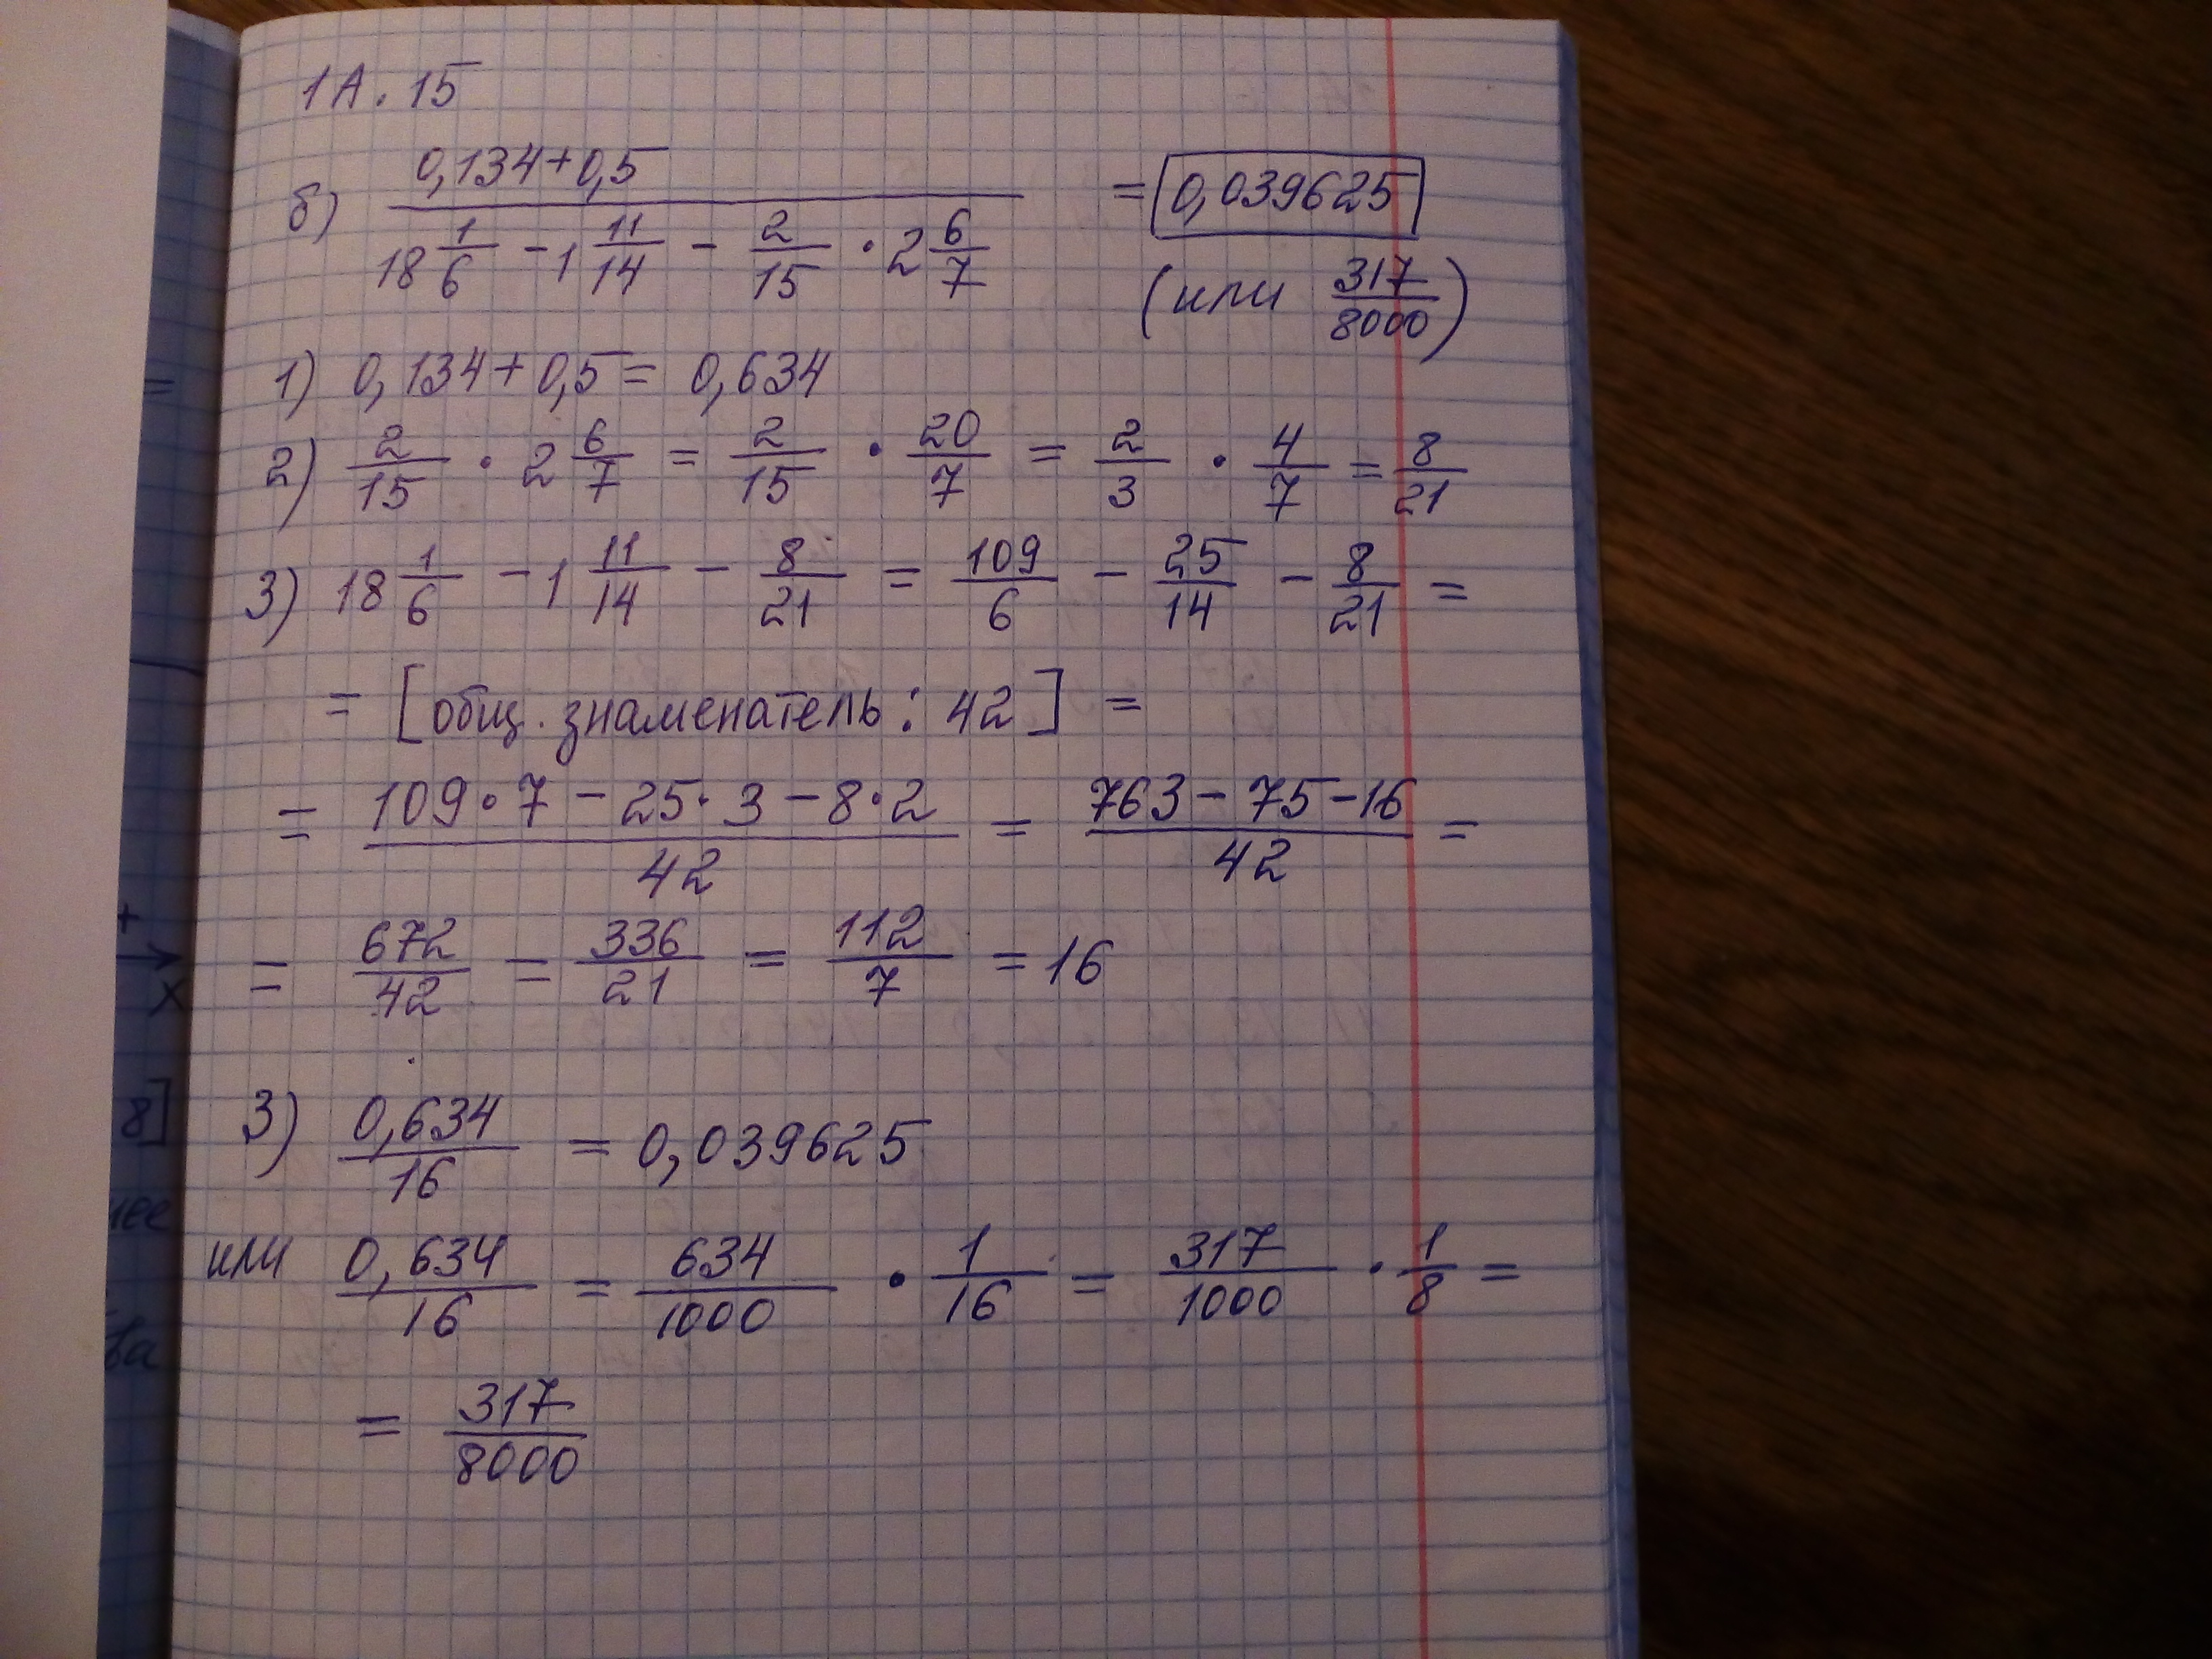 1А.15
б) (0,134+0,5)/(18 1/6 - 1 11/14 - 2/15 · 2 6/7) = 0,039625
(или 317/8000)
1) 0,134+0,5 = 0,634
2) 2/15 · 2 6/7 = 2/15 · 20/7 = 2/3 · 4/7 = 8/21
3) 18 1/6 - 1 11/14 - 8/21 = 109/6 - 25/14 - 8/21 =
= [общ. знаменатель: 42] =
= (109·7 - 25·3 - 8·2)/42 = (763 - 75 - 16)/42 =
= 672/42 = 336/21 = 112/7 = 16
3) 0,634/16 = 0,039625
или 0,634/16 = 634/1000 · 1/16 = 317/1000 · 1/8 =
= 317/8000
=
+
x
8]